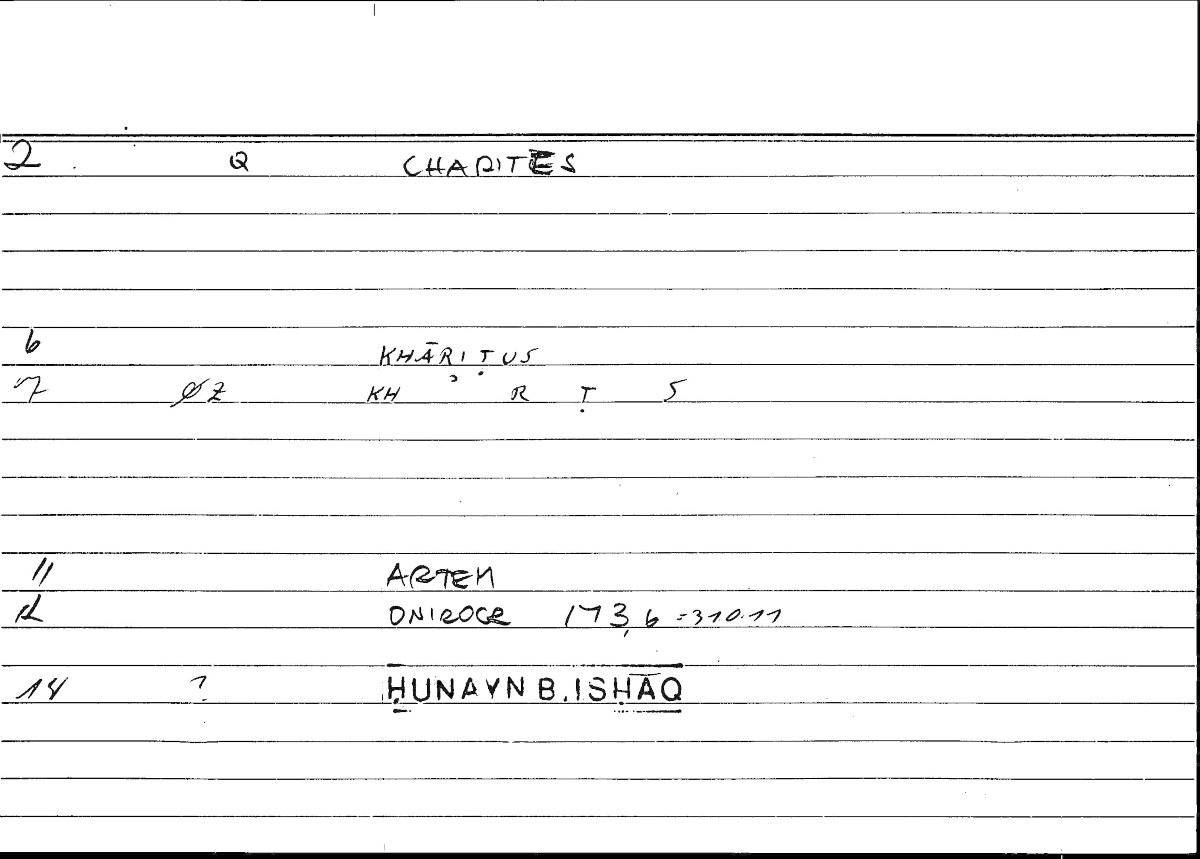 2 Q CHARITES
6 KHĀRIṬUS
7 ØZ KH ʾ R Ṭ S
11 ARTEM
12 ONIROCR 173,6 =310.11
14 ? ḤUNAYN B. ISḤĀQ